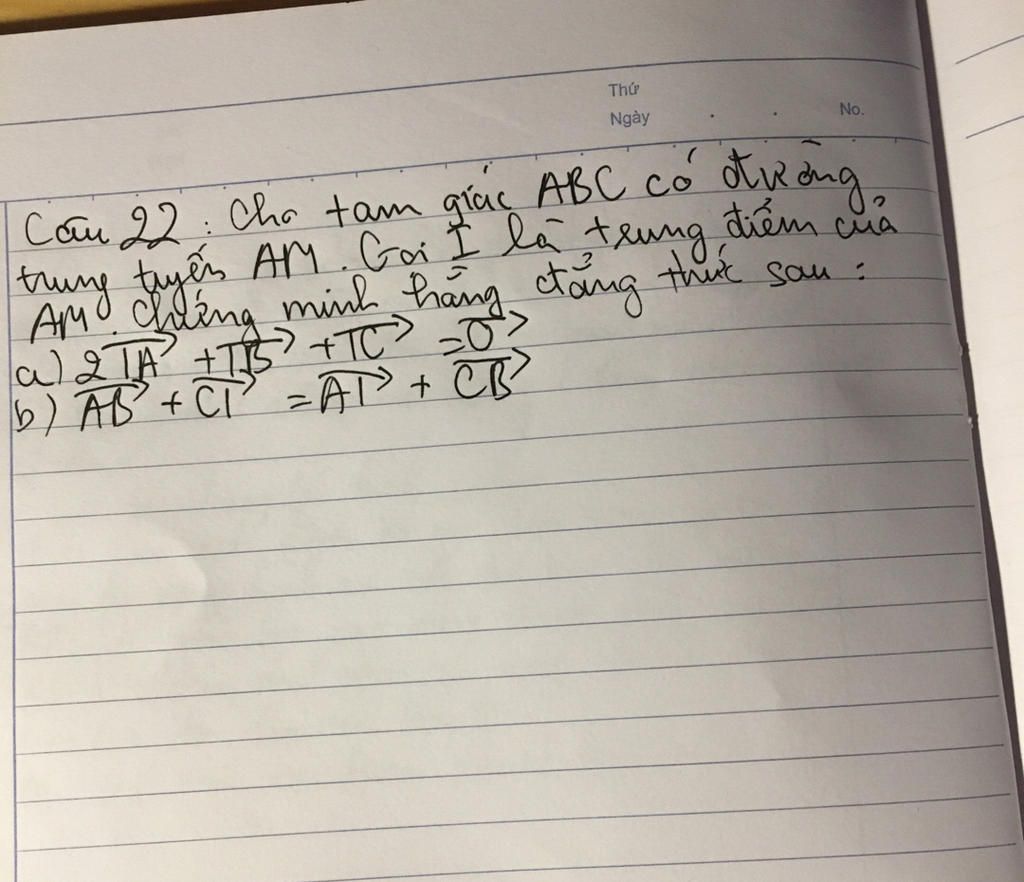 Thứ
Ngày . . No.
Câu 22 : Cho tam giác ABC có đường
trung tuyến AM. Gọi I là trung điểm của
AM. Chứng minh hằng đẳng thức sau :
a) 2IA + IB + IC = 0
b) AB + CI = AI + CB